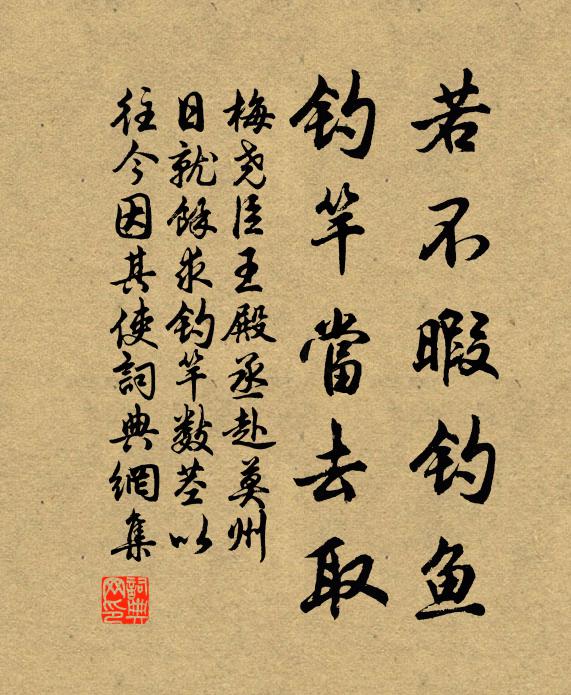 若不暇钓鱼
钓竿當去取
梅尧臣王殿丞赴莫州
日就餘求钓竿数茎以
往今因其使詞典網集
詞典网印